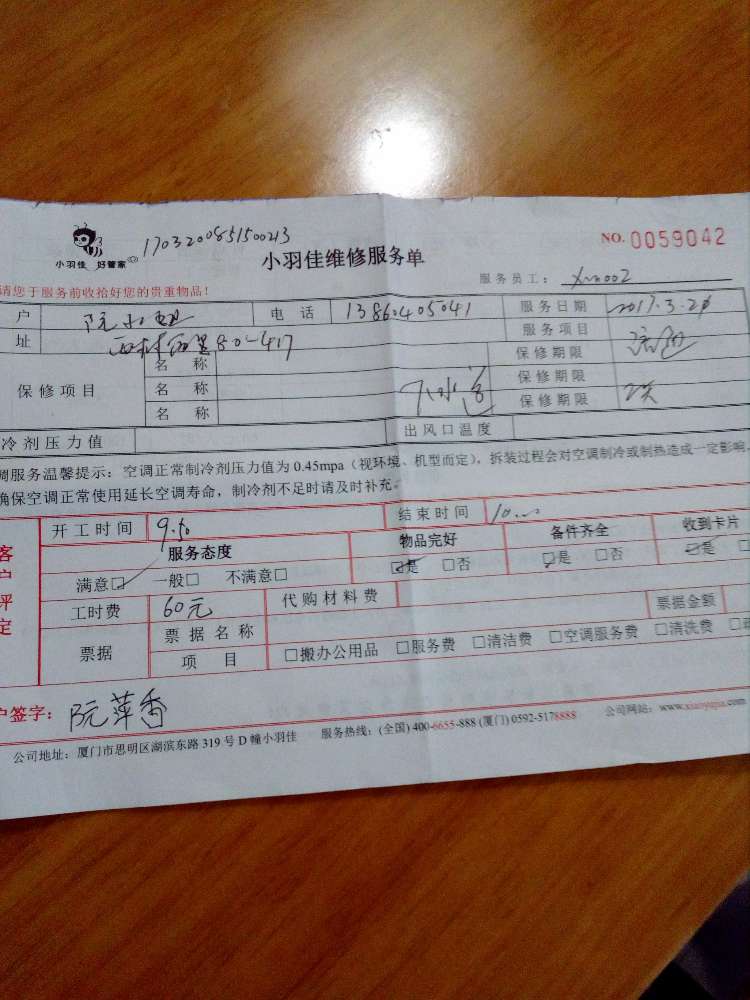 1703200851500213
小羽佳 好管家
小羽佳维修服务单
NO. 0059042
请您于服务前收拾好您的贵重物品!
服务员工: xm002
户 阮小姐 电话 13860405041 服务日期 2017.3.20
址 西林西里80-417 服务项目
保修项目 名称 保修期限
名称 下水道 保修期限
名称 保修期限
冷剂压力值 出风口温度
调服务温馨提示: 空调正常制冷剂压力值为 0.45mpa (视环境、机型而定), 拆装过程会对空调制冷或制热造成一定影响,
确保空调正常使用延长空调寿命, 制冷剂不足时请及时补充。
客户评定
开工时间 9.50 结束时间 10.00
服务态度 物品完好 备件齐全 收到卡片
满意□ 一般□ 不满意□ □是 □否 □是 □否 □是 □
工时费 60元 代购材料费
票据 票据名称 票据金额
项目 □搬办公用品 □服务费 □清洁费 □空调服务费 □清洗费 □
户签字: 阮萍香
公司地址: 厦门市思明区湖滨东路 319 号 D 幢小羽佳 服务热线: (全国) 400-6655-888 (厦门) 0592-5178888 公司网站: www.xiaoyujia.com